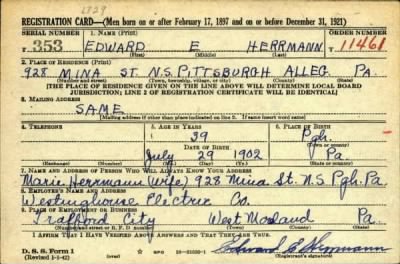 1829
REGISTRATION CARD—(Men born on or after February 17, 1897 and on or before December 31, 1921)
SERIAL NUMBER 1. NAME (Print) ORDER NUMBER
T 353 EDWARD E HERRMANN 11461
(First) (Middle) (Last)
2. PLACE OF RESIDENCE (Print)
928 MINA ST. N.S. PITTSBURGH ALLEG. PA.
(Number and street) (Town, township, village, or city) (County) (State)
[THE PLACE OF RESIDENCE GIVEN ON THE LINE ABOVE WILL DETERMINE LOCAL BOARD
JURISDICTION; LINE 2 OF REGISTRATION CERTIFICATE WILL BE IDENTICAL]
3. MAILING ADDRESS
SAME
[Mailing address if other than place indicated on line 2. If same insert word same]
4. TELEPHONE 5. AGE IN YEARS 6. PLACE OF BIRTH
39 Pgh.
DATE OF BIRTH (Town or county)
July 29 1902 Pa
(Exchange) (Number) (Mo.) (Day) (Yr.) (State or country)
7. NAME AND ADDRESS OF PERSON WHO WILL ALWAYS KNOW YOUR ADDRESS
Marie Herrmann (wife) 928 Mina St. N.S Pgh. Pa.
8. EMPLOYER'S NAME AND ADDRESS
Westinghouse Electric Co.
9. PLACE OF EMPLOYMENT OR BUSINESS
Trafford City West Morland Pa
(Number and street or R. F. D. number) (Town) (County) (State)
I AFFIRM THAT I HAVE VERIFIED ABOVE ANSWERS AND THAT THEY ARE TRUE.
D. S. S. Form 1 Edward E Herrmann
(Revised 1-5-42) GPO 16—21630-1 (Registrant's signature)